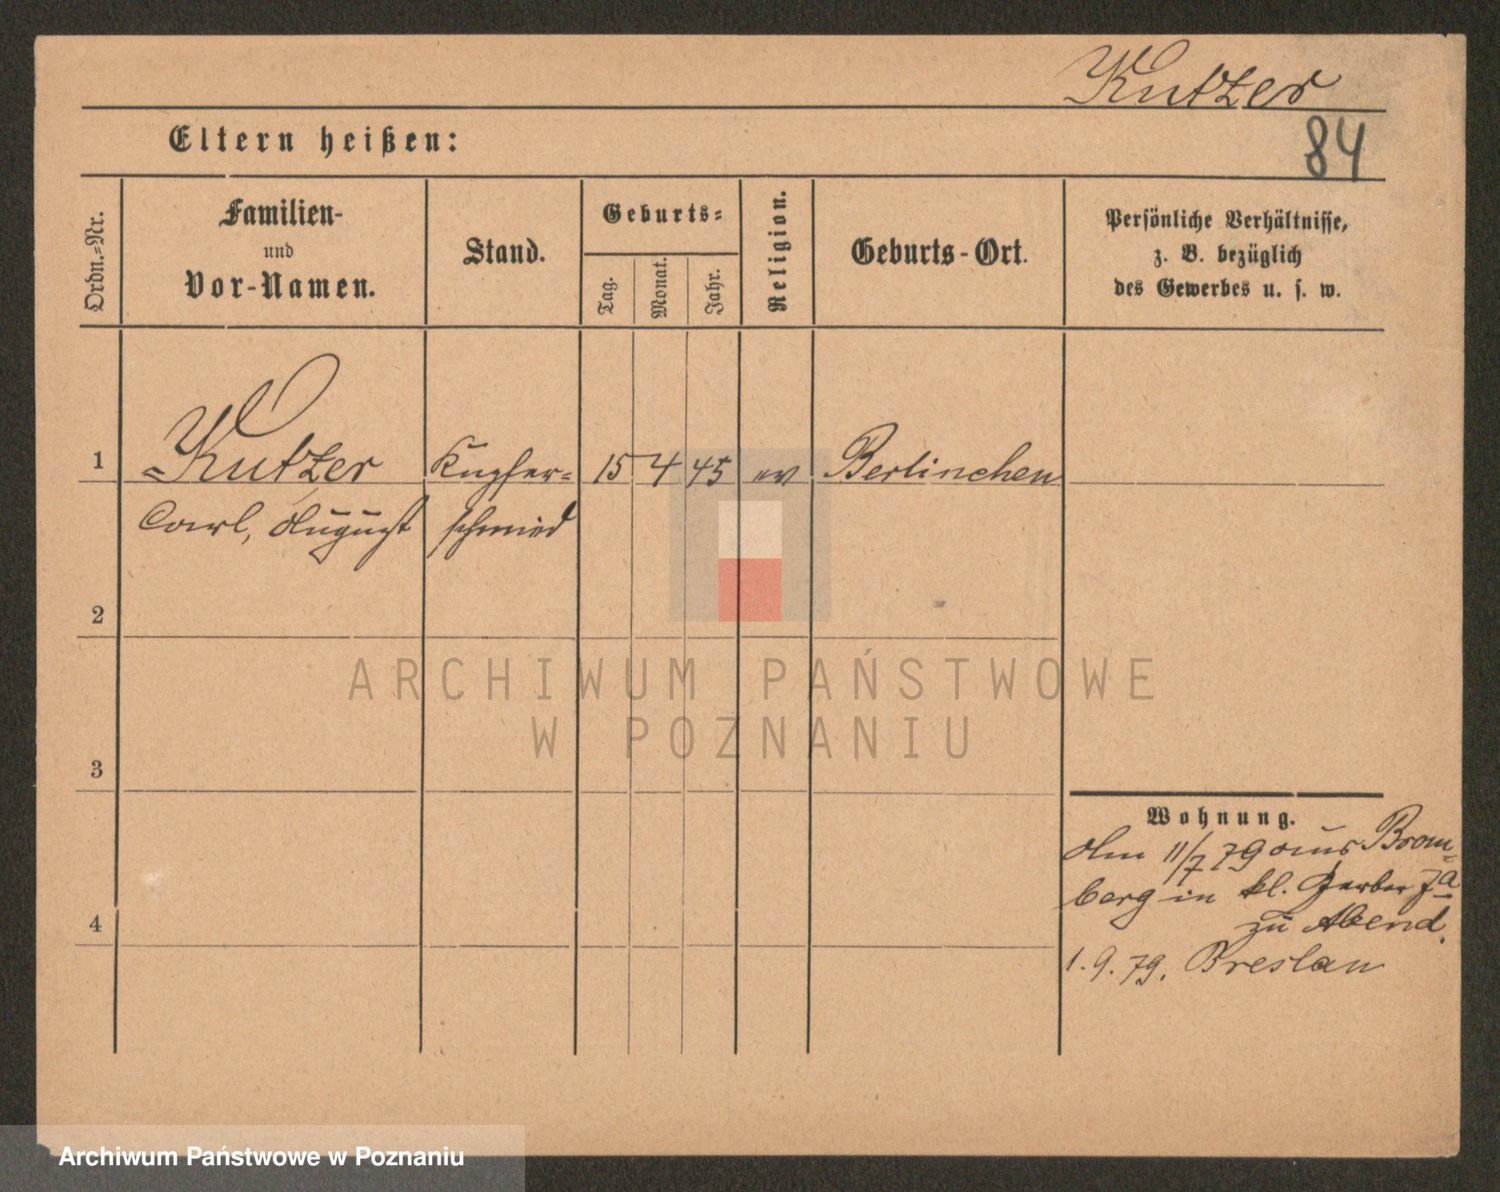 Kutzer
Eltern heißen:
84
Ordn.-Nr.
Familien-
und
Vor-Namen.
Stand.
Geburts-
Tag.
Monat.
Jahr.
Religion.
Geburts-Ort.
Persönliche Verhältnisse,
z. B. bezüglich
des Gewerbes u. s. w.
1 Kutzer Kupfer- 15 4 45 ev Berlinchen
Carl, August schmied
2
3
4
Wohnung.
Am 11/7 79 aus Brom-
berg in kl. Gerber 7a
zu Abend.
1. 9. 79. Breslau
ARCHIWUM PAŃSTWOWE
W POZNANIU
Archiwum Państwowe w Poznaniu